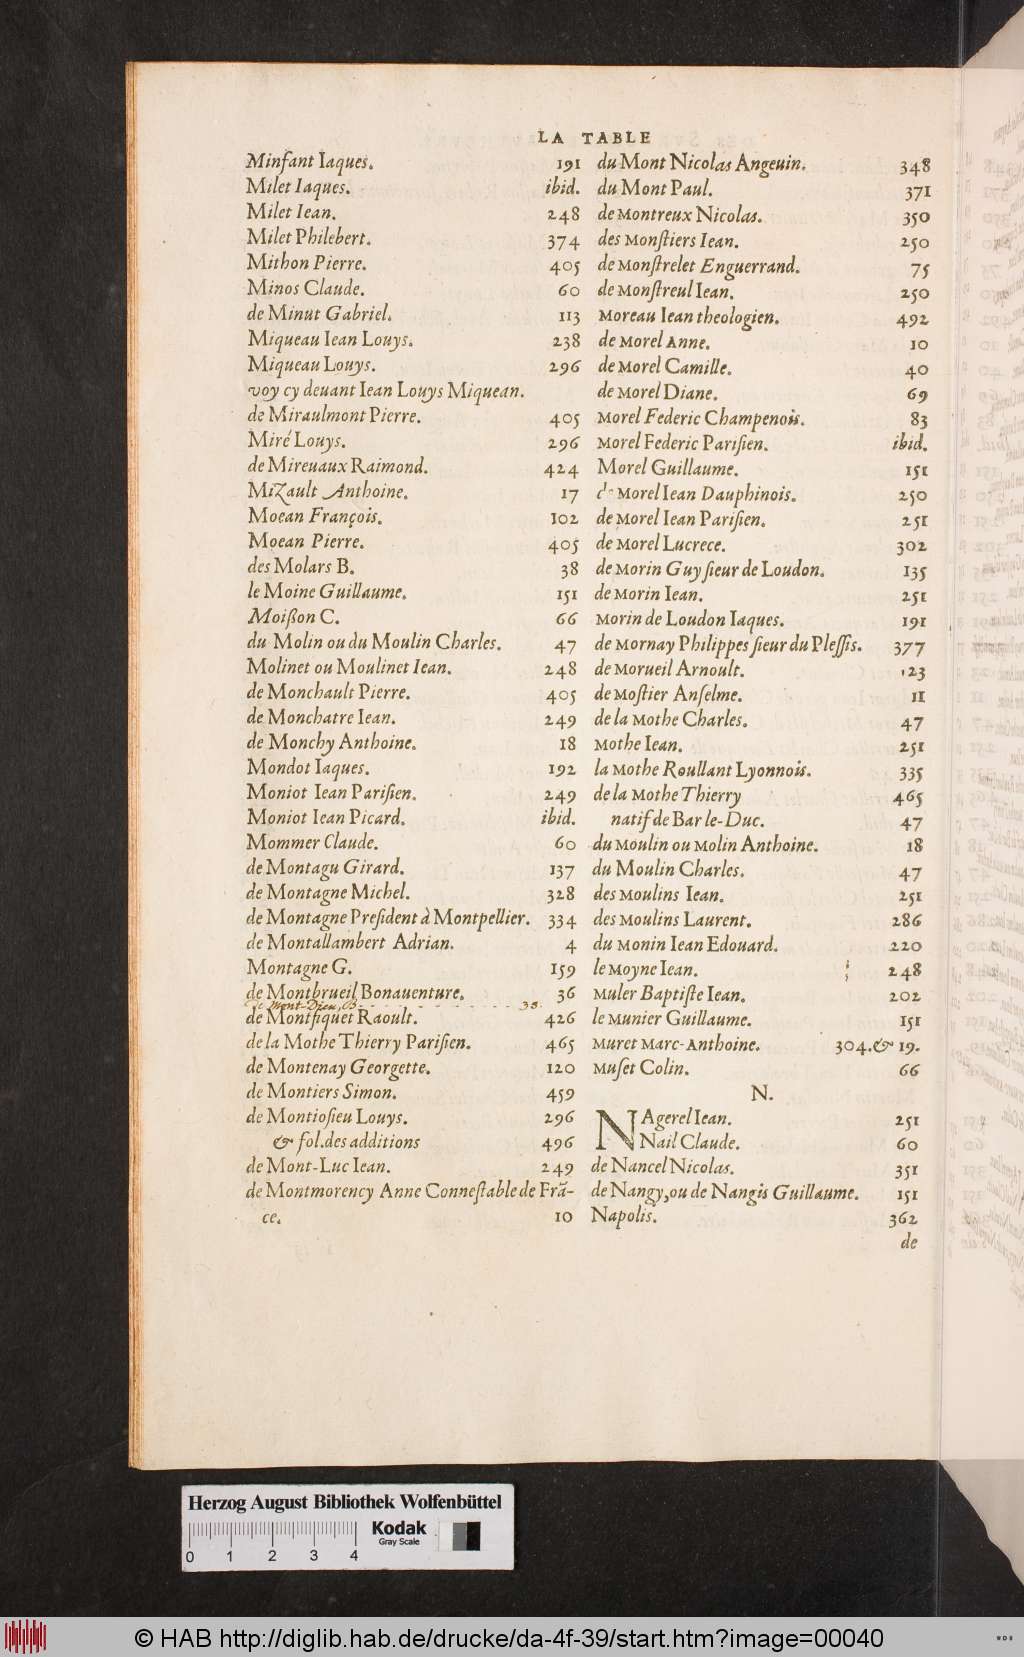 LA TABLE
Minfant Iaques. 191
Milet Iaques. ibid.
Milet Iean. 248
Milet Philebert. 374
Mithon Pierre. 405
Minos Claude. 60
de Minut Gabriel. 113
Miqueau Iean Louys. 238
Miqueau Louys. 296
voy cy deuant Iean Louys Miquean.
de Miraulmont Pierre. 405
Miré Louys. 296
de Mireuaux Raimond. 424
Mizault Anthoine. 17
Moean François. 102
Moean Pierre. 405
des Molars B. 38
le Moine Guillaume. 151
Moißon C. 66
du Molin ou du Moulin Charles. 47
Molinet ou Moulinet Iean. 248
de Monchault Pierre. 405
de Monchatre Iean. 249
de Monchy Anthoine. 18
Mondot Iaques. 192
Moniot Iean Pariſien. 249
Moniot Iean Picard. ibid.
Mommer Claude. 60
de Montagu Girard. 137
de Montagne Michel. 328
de Montagne Preſident à Montpellier. 334
de Montallambert Adrian. 4
Montagne G. 159
de Montbrueil Bonauenture. 36
de Mont-Dieu, B. 38.
de Montfiquet Raoult. 426
de la Mothe Thierry Pariſien. 465
de Montenay Georgette. 120
de Montiers Simon. 459
de Montioſieu Louys. 296
& fol. des additions 496
de Mont-Luc Iean. 249
de Montmorency Anne Conneſtable de Frã-
ce. 10
du Mont Nicolas Angeuin. 348
du Mont Paul. 371
de Montreux Nicolas. 350
des Monſtiers Iean. 250
de Monſtrelet Enguerrand. 75
de Monſtreul Iean. 250
Moreau Iean theologien. 492
de Morel Anne. 10
de Morel Camille. 40
de Morel Diane. 69
Morel Federic Champenois. 83
Morel Federic Pariſien. ibid.
Morel Guillaume. 151
de Morel Iean Dauphinois. 250
de Morel Iean Pariſien. 251
de Morel Lucrece. 302
de Morin Guy ſieur de Loudon. 135
de Morin Iean. 251
Morin de Loudon Iaques. 191
de Mornay Philippes ſieur du Pleſſis. 377
de Morueil Arnoult. 23
de Moſtier Anſelme. 11
de la Mothe Charles. 47
Mothe Iean. 251
la Mothe Roullant Lyonnois. 335
de la Mothe Thierry 465
natif de Bar le-Duc. 47
du Moulin ou Molin Anthoine. 18
du Moulin Charles. 47
des Moulins Iean. 251
des Moulins Laurent. 286
du Monin Iean Edouard. 220
le Moyne Iean. 248
Muler Baptiſte Iean. 202
le Munier Guillaume. 151
Muret Marc-Anthoine. 304.& 19.
Muſet Colin. 66
N.
NAgerel Iean. 251
Nail Claude. 60
de Nancel Nicolas. 351
de Nangy, ou de Nangis Guillaume. 151
Napolis. 362
de
Herzog August Bibliothek Wolfenbüttel
Kodak
Gray Scale
0 1 2 3 4
© HAB http://diglib.hab.de/drucke/da-4f-39/start.htm?image=00040